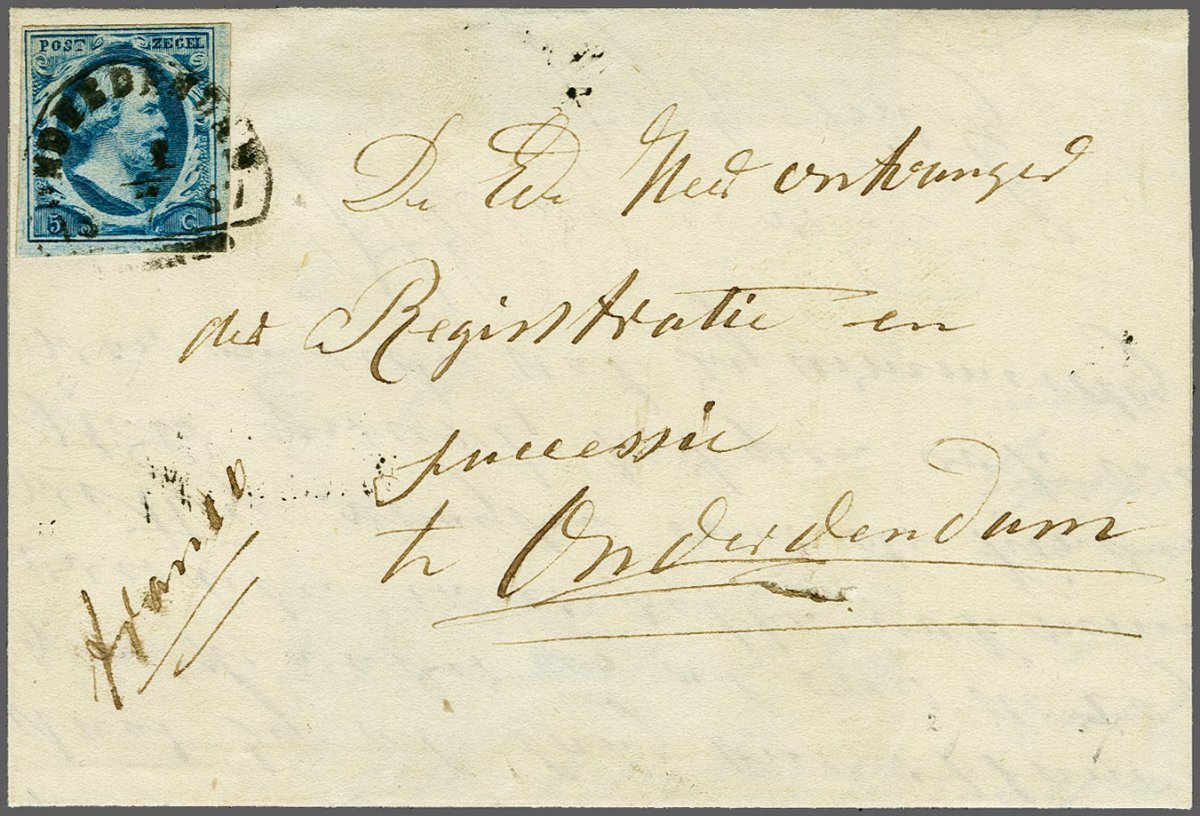 POST ZEGEL
5 C
De Ed Heer ontvanger
der Registratie en
successie
te Onderdendam
franco